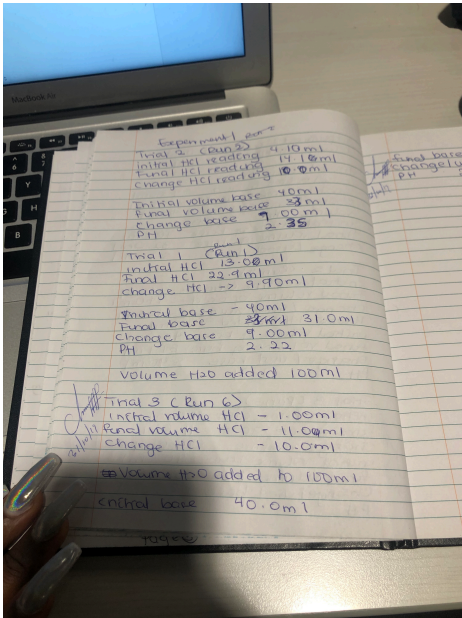 MacBook Air
Experiment 1
Trial 2 (Run 2)
initial HCl reading 4.10ml
Final HCl reading 14.10ml
Change HCl reading 10.0ml
Initial volume base 40ml
final volume base 33ml
Change base 7.00ml
PH 2.35
Run 1
Trial 1 (Run 1)
initial HCl 13.00ml
Final HCl 22.9ml
Change HCl -> 9.90ml
Initial base - 40ml
Final base 31.0ml
Change base 9.00ml
PH 2.22
Volume H2O added 100ml
Trial 3 (Run 6)
initial volume HCl - 1.00ml
Final volume HCl - 11.00ml
Change HCl - 10.0ml
Volume H2O added to 100ml
initial base 40.0ml
final base
Change
PH